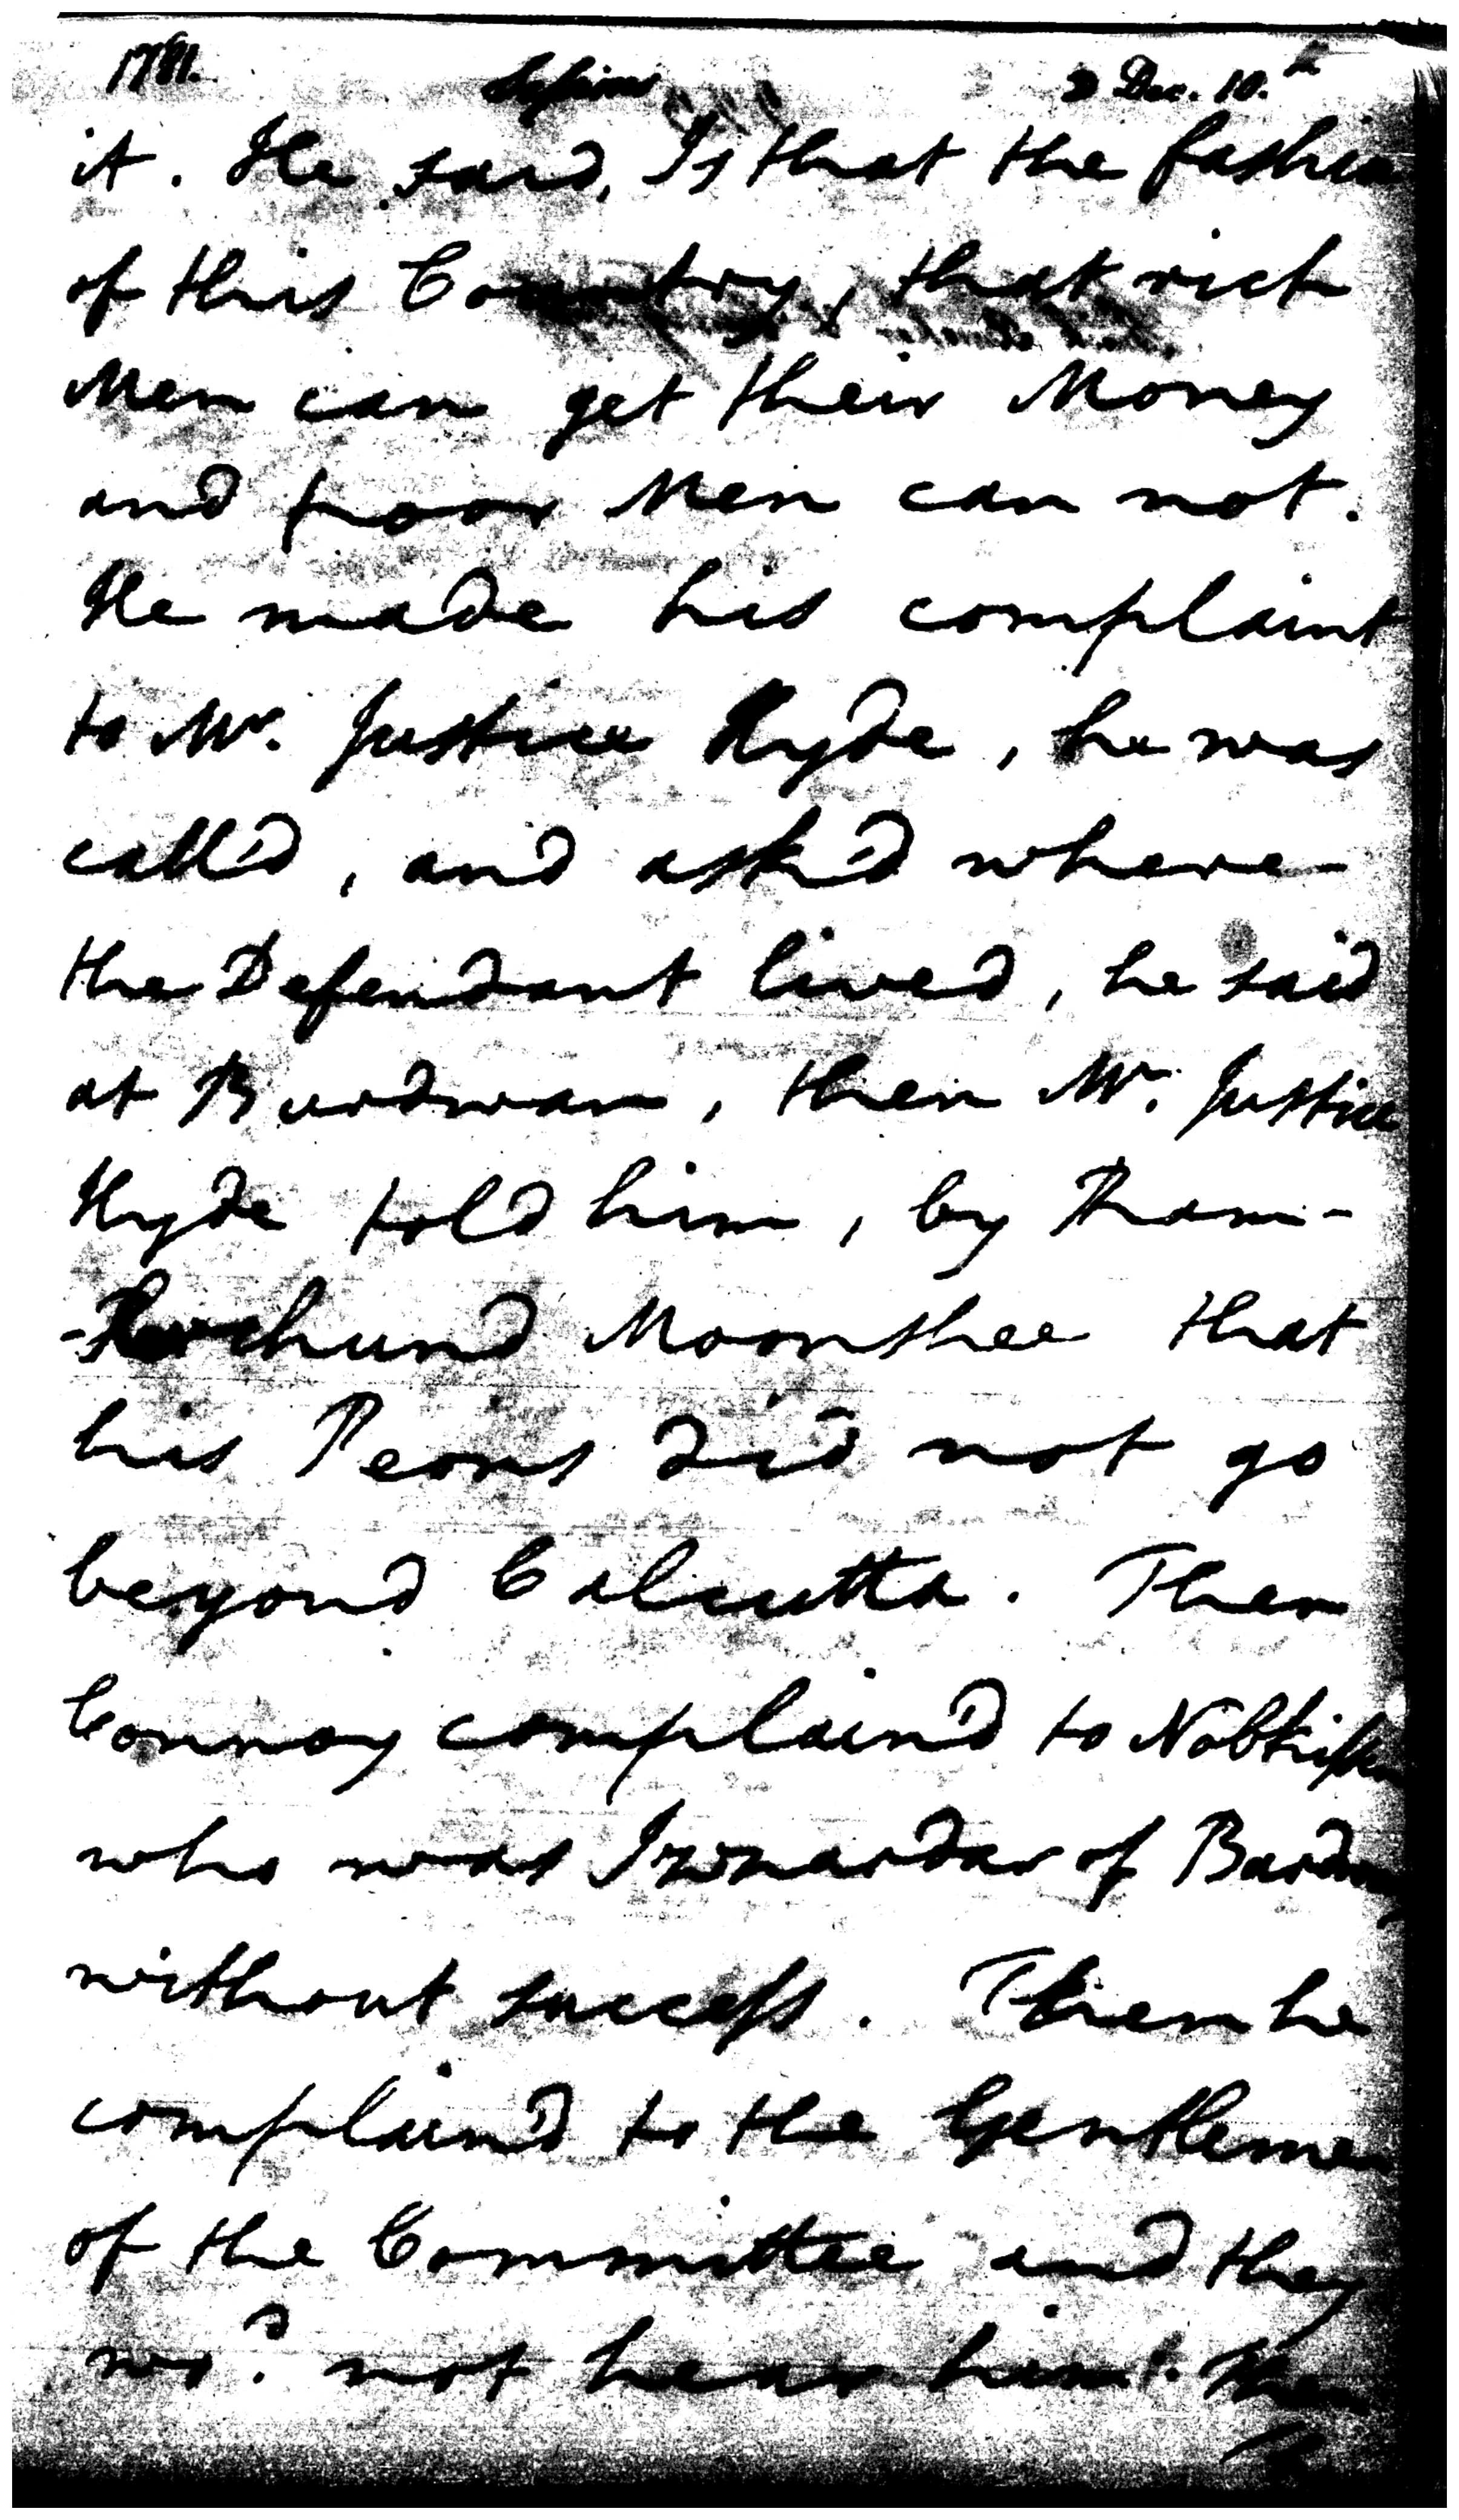 1781. Sessions ☽ Dec. 10.th
it. He said, Is that the fashion
of this Country, that rich
Men can get their Money
and poor Men can not.
He made his complaint
to Mr. Justice Hyde, he was
call'd, and ask'd where
the Defendant lived, he said
at Burdwan, then Mr. Justice
Hyde told him, by Ram-
-chund Moonshee that
his Peons did not go
beyond Calcutta. Then
Connoy complain'd to Nobkissen
who was Izwardar of Burdwan
without success. Then he
complain'd to the Gentlemen
of the Committee and they
wod. not hear him. Then